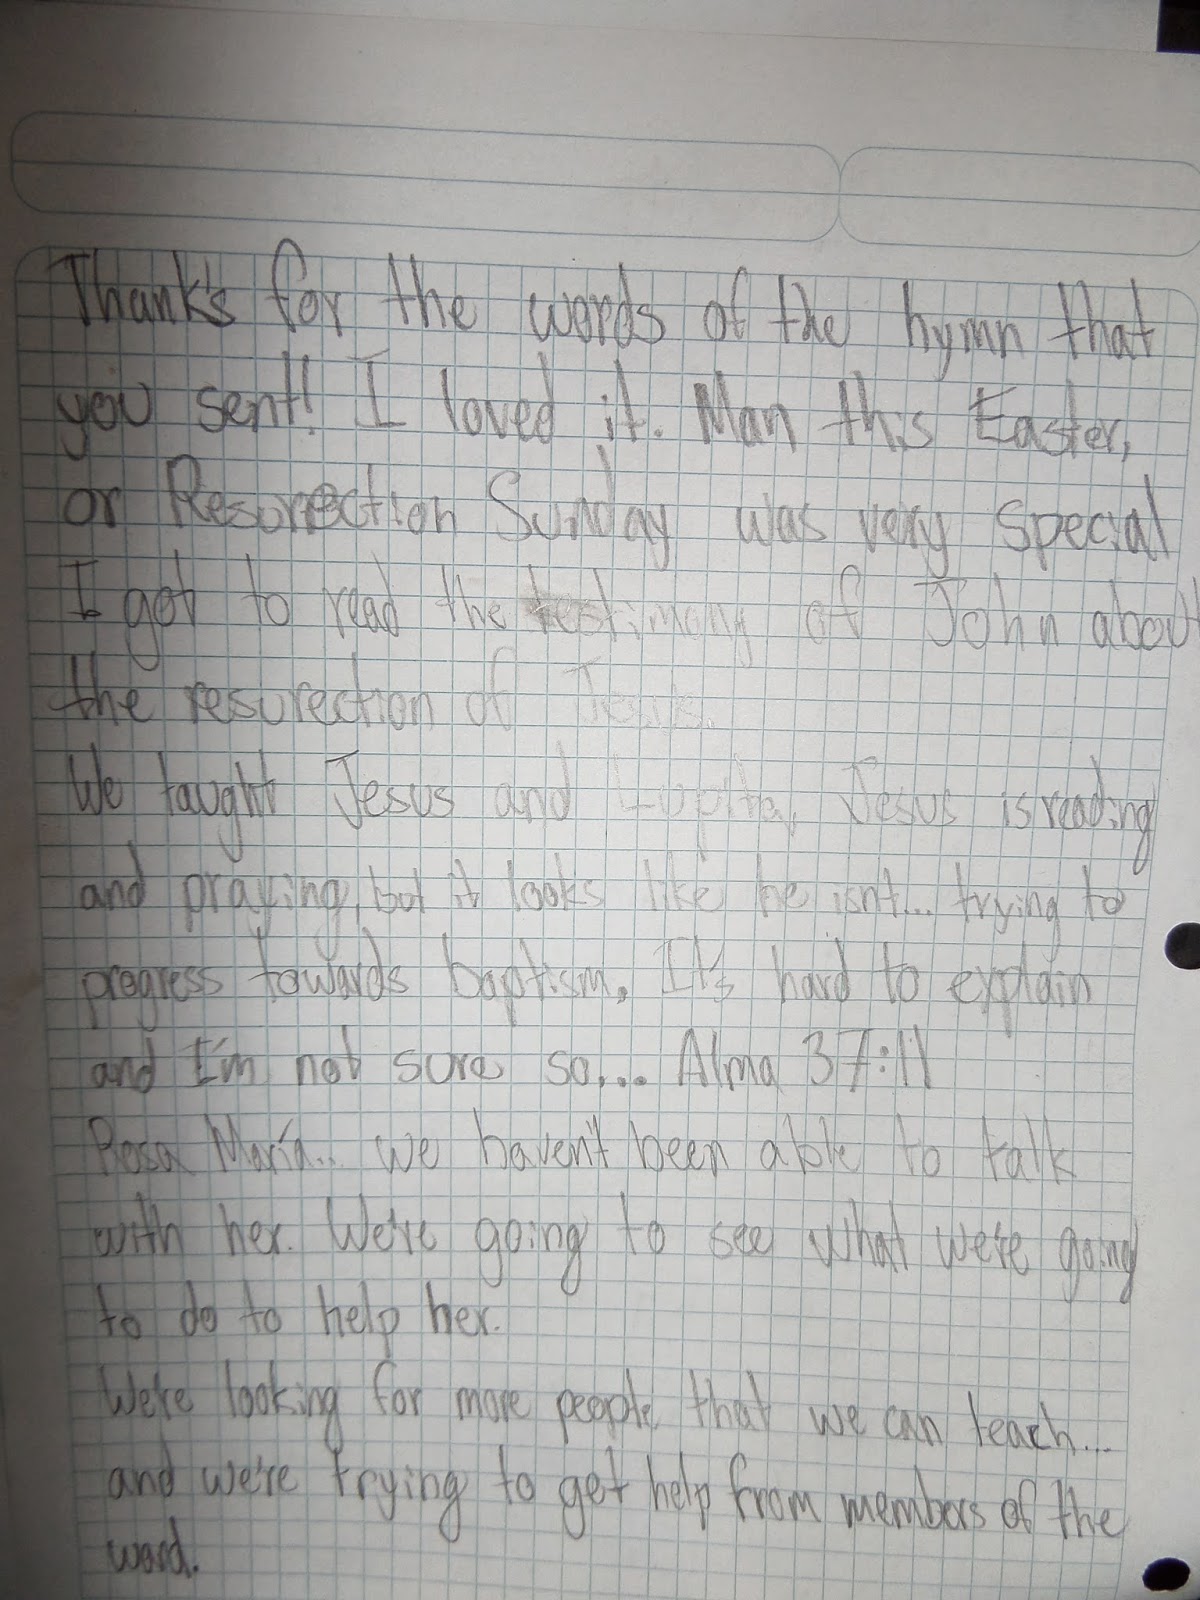 Thank's for the words of the hymn that
you sent! I loved it. Man this Easter,
or Resurrection Sunday was very special
I got to read the testimony of John about
the resurection of Jesus.
We taught Jesus and Lupita, Jesus is reading
and praying, but it looks like he isn't... trying to
progress towards baptism. It's hard to explain
and I'm not sure so.... Alma 37:11
Rosa María... we haven't been able to talk
with her. We're going to see what we're going
to do to help her.
We're looking for more people that we can teach...
and we're trying to get help from members of the
ward.